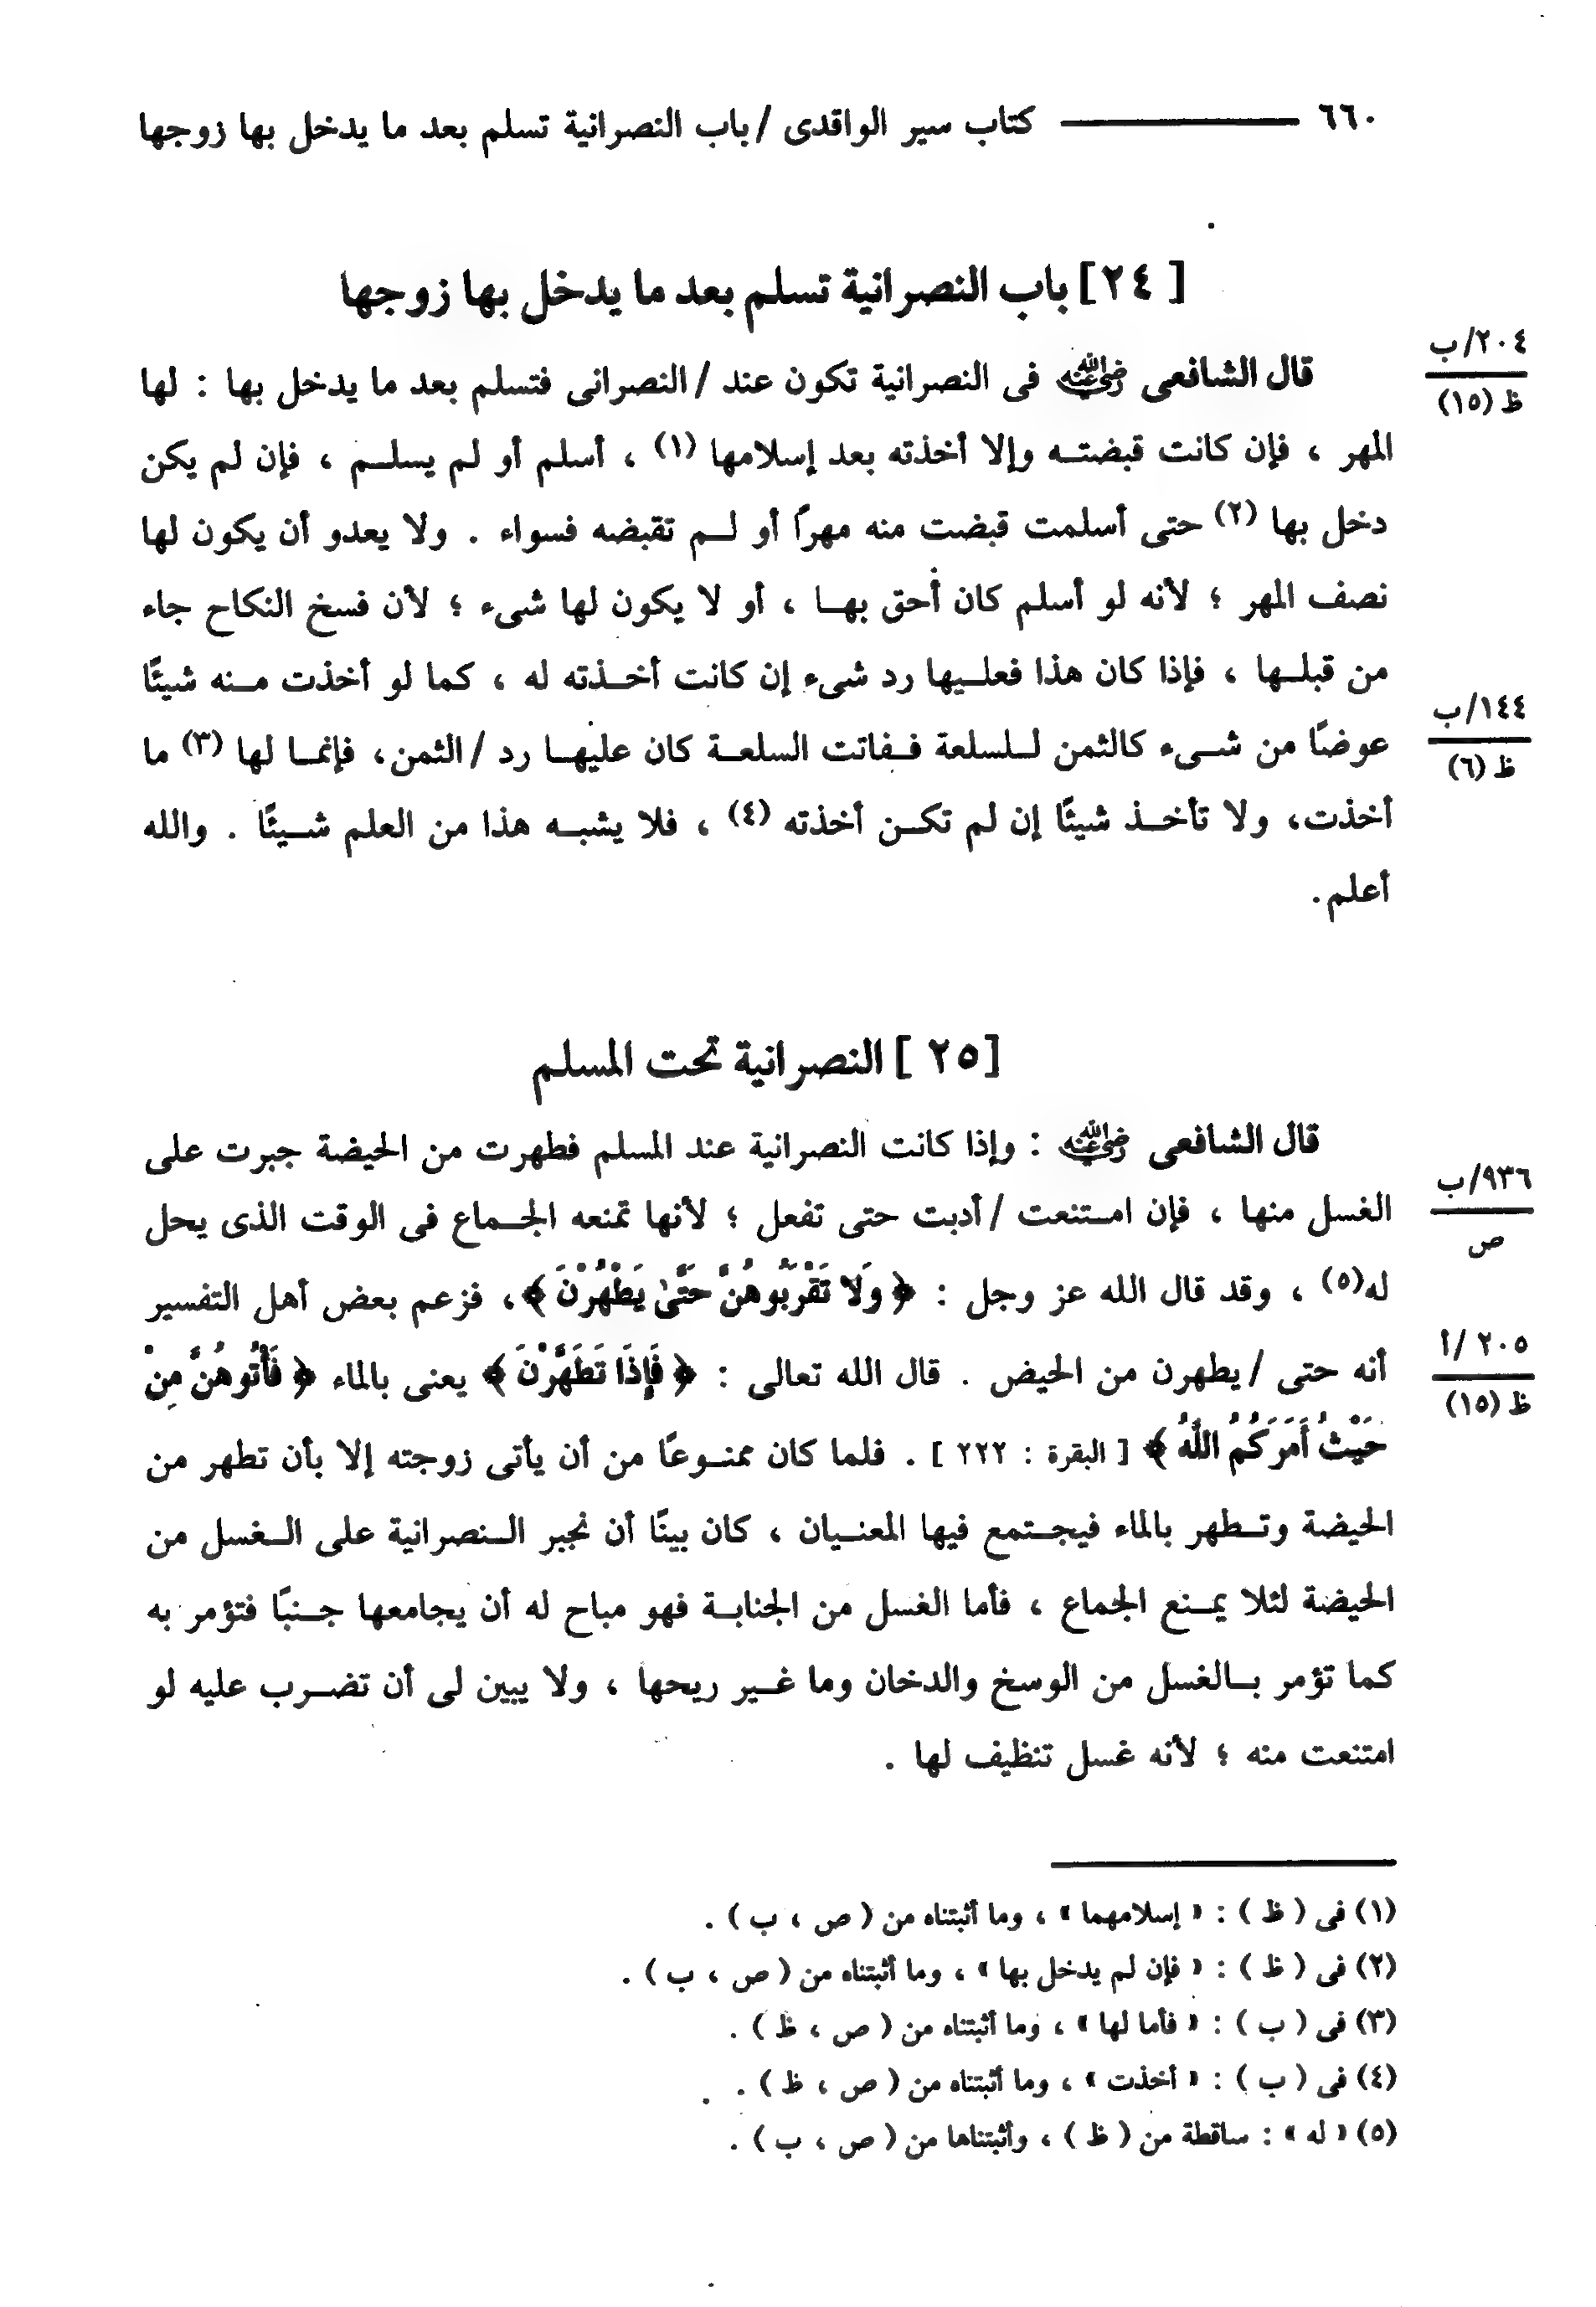 ٦٦٠ ـــــــ كتاب سير الواقدى / باب النصرانية تسلم بعد ما يدخل بها زوجها
[ ٢٤ ] باب النصرانية تسلم بعد ما يدخل بها زوجها
قال الشافعى رضي الله عنه فى النصرانية تكون عند / النصرانى فتسلم بعد ما يدخل بها : لها
٢٠٤/ب
ظ (١٥)
المهر ، فإن كانت قبضته وإلا أخذته بعد إسلامها (١) ، أسلم أو لم يسلم ، فإن لم يكن
دخل بها (٢) حتى أسلمت قبضت منه مهرًا أو لم تقبضه فسواء . ولا يعدو أن يكون لها
نصف المهر ؛ لأنه لو أسلم كان أحق بها ، أو لا يكون لها شىء ؛ لأن فسخ النكاح جاء
من قبلها ، فإذا كان هذا فعليها رد شىء إن كانت أخذته له ، كما لو أخذت منه شيئًا
١٤٤/ب
ظ (٦)
عوضًا من شىء كالثمن للسلعة ففاتت السلعة كان عليها رد / الثمن، فإنما لها (٣) ما
أخذت، ولا تأخذ شيئًا إن لم تكن أخذته (٤) ، فلا يشبه هذا من العلم شيئًا . والله
أعلم.
[٢٥ ] النصرانية تحت المسلم
قال الشافعى رضي الله عنه : وإذا كانت النصرانية عند المسلم فطهرت من الحيضة جبرت على
٩٣٦/ب
ص
الغسل منها ، فإن امتنعت / أدبت حتى تفعل ؛ لأنها تمنعه الجماع فى الوقت الذى يحل
له(٥) ، وقد قال الله عز وجل : ﴿ وَلا تَقْرَبُوهُنَّ حَتَّىٰ يَطْهُرْنَ ﴾، فزعم بعض أهل التفسير
٢٠٥ /أ
ظ (١٥)
أنه حتى / يطهرن من الحيض . قال الله تعالى : ﴿ فَإِذَا تَطَهَّرْنَ ﴾ يعنى بالماء ﴿ فَأْتُوهُنَّ مِنْ
حَيْثُ أَمَرَكُمُ اللَّهُ ﴾ [ البقرة : ٢٢٢ ] . فلما كان ممنوعًا من أن يأتى زوجته إلا بأن تطهر من
الحيضة وتطهر بالماء فيجتمع فيها المعنيان ، كان بينًا أن نجبر النصرانية على الغسل من
الحيضة لئلا يمنع الجماع ، فأما الغسل من الجنابة فهو مباح له أن يجامعها جنبًا فتؤمر به
كما تؤمر بالغسل من الوسخ والدخان وما غير ريحها ، ولا يبين لى أن تضرب عليه لو
امتنعت منه ؛ لأنه غسل تنظيف لها .
(١) فى ( ظ ) : « إسلامهما » ، وما أثبتناه من ( ص ، ب ) .
(٢) فى ( ظ ) : « فإن لم يدخل بها » ، وما أثبتناه من ( ص ، ب ) .
(٣) فى ( ب ) : « فأما لها » ، وما أثبتناه من ( ص ، ظ ) .
(٤) فى ( ب ) : « أخذت » ، وما أثبتناه من ( ص ، ظ ) .
(٥) « له » : ساقطة من ( ظ ) ، وأثبتناها من ( ص ، ب ) .